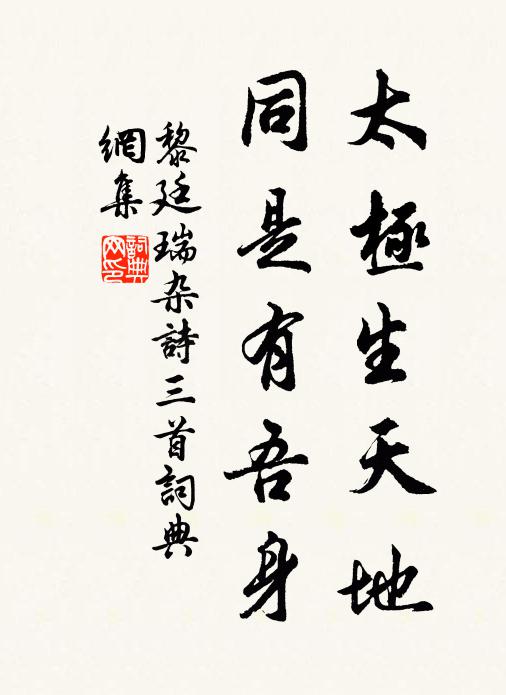 太極生天地
同是有吾身
黎廷瑞杂詩三首詞典
網集
詞典网印